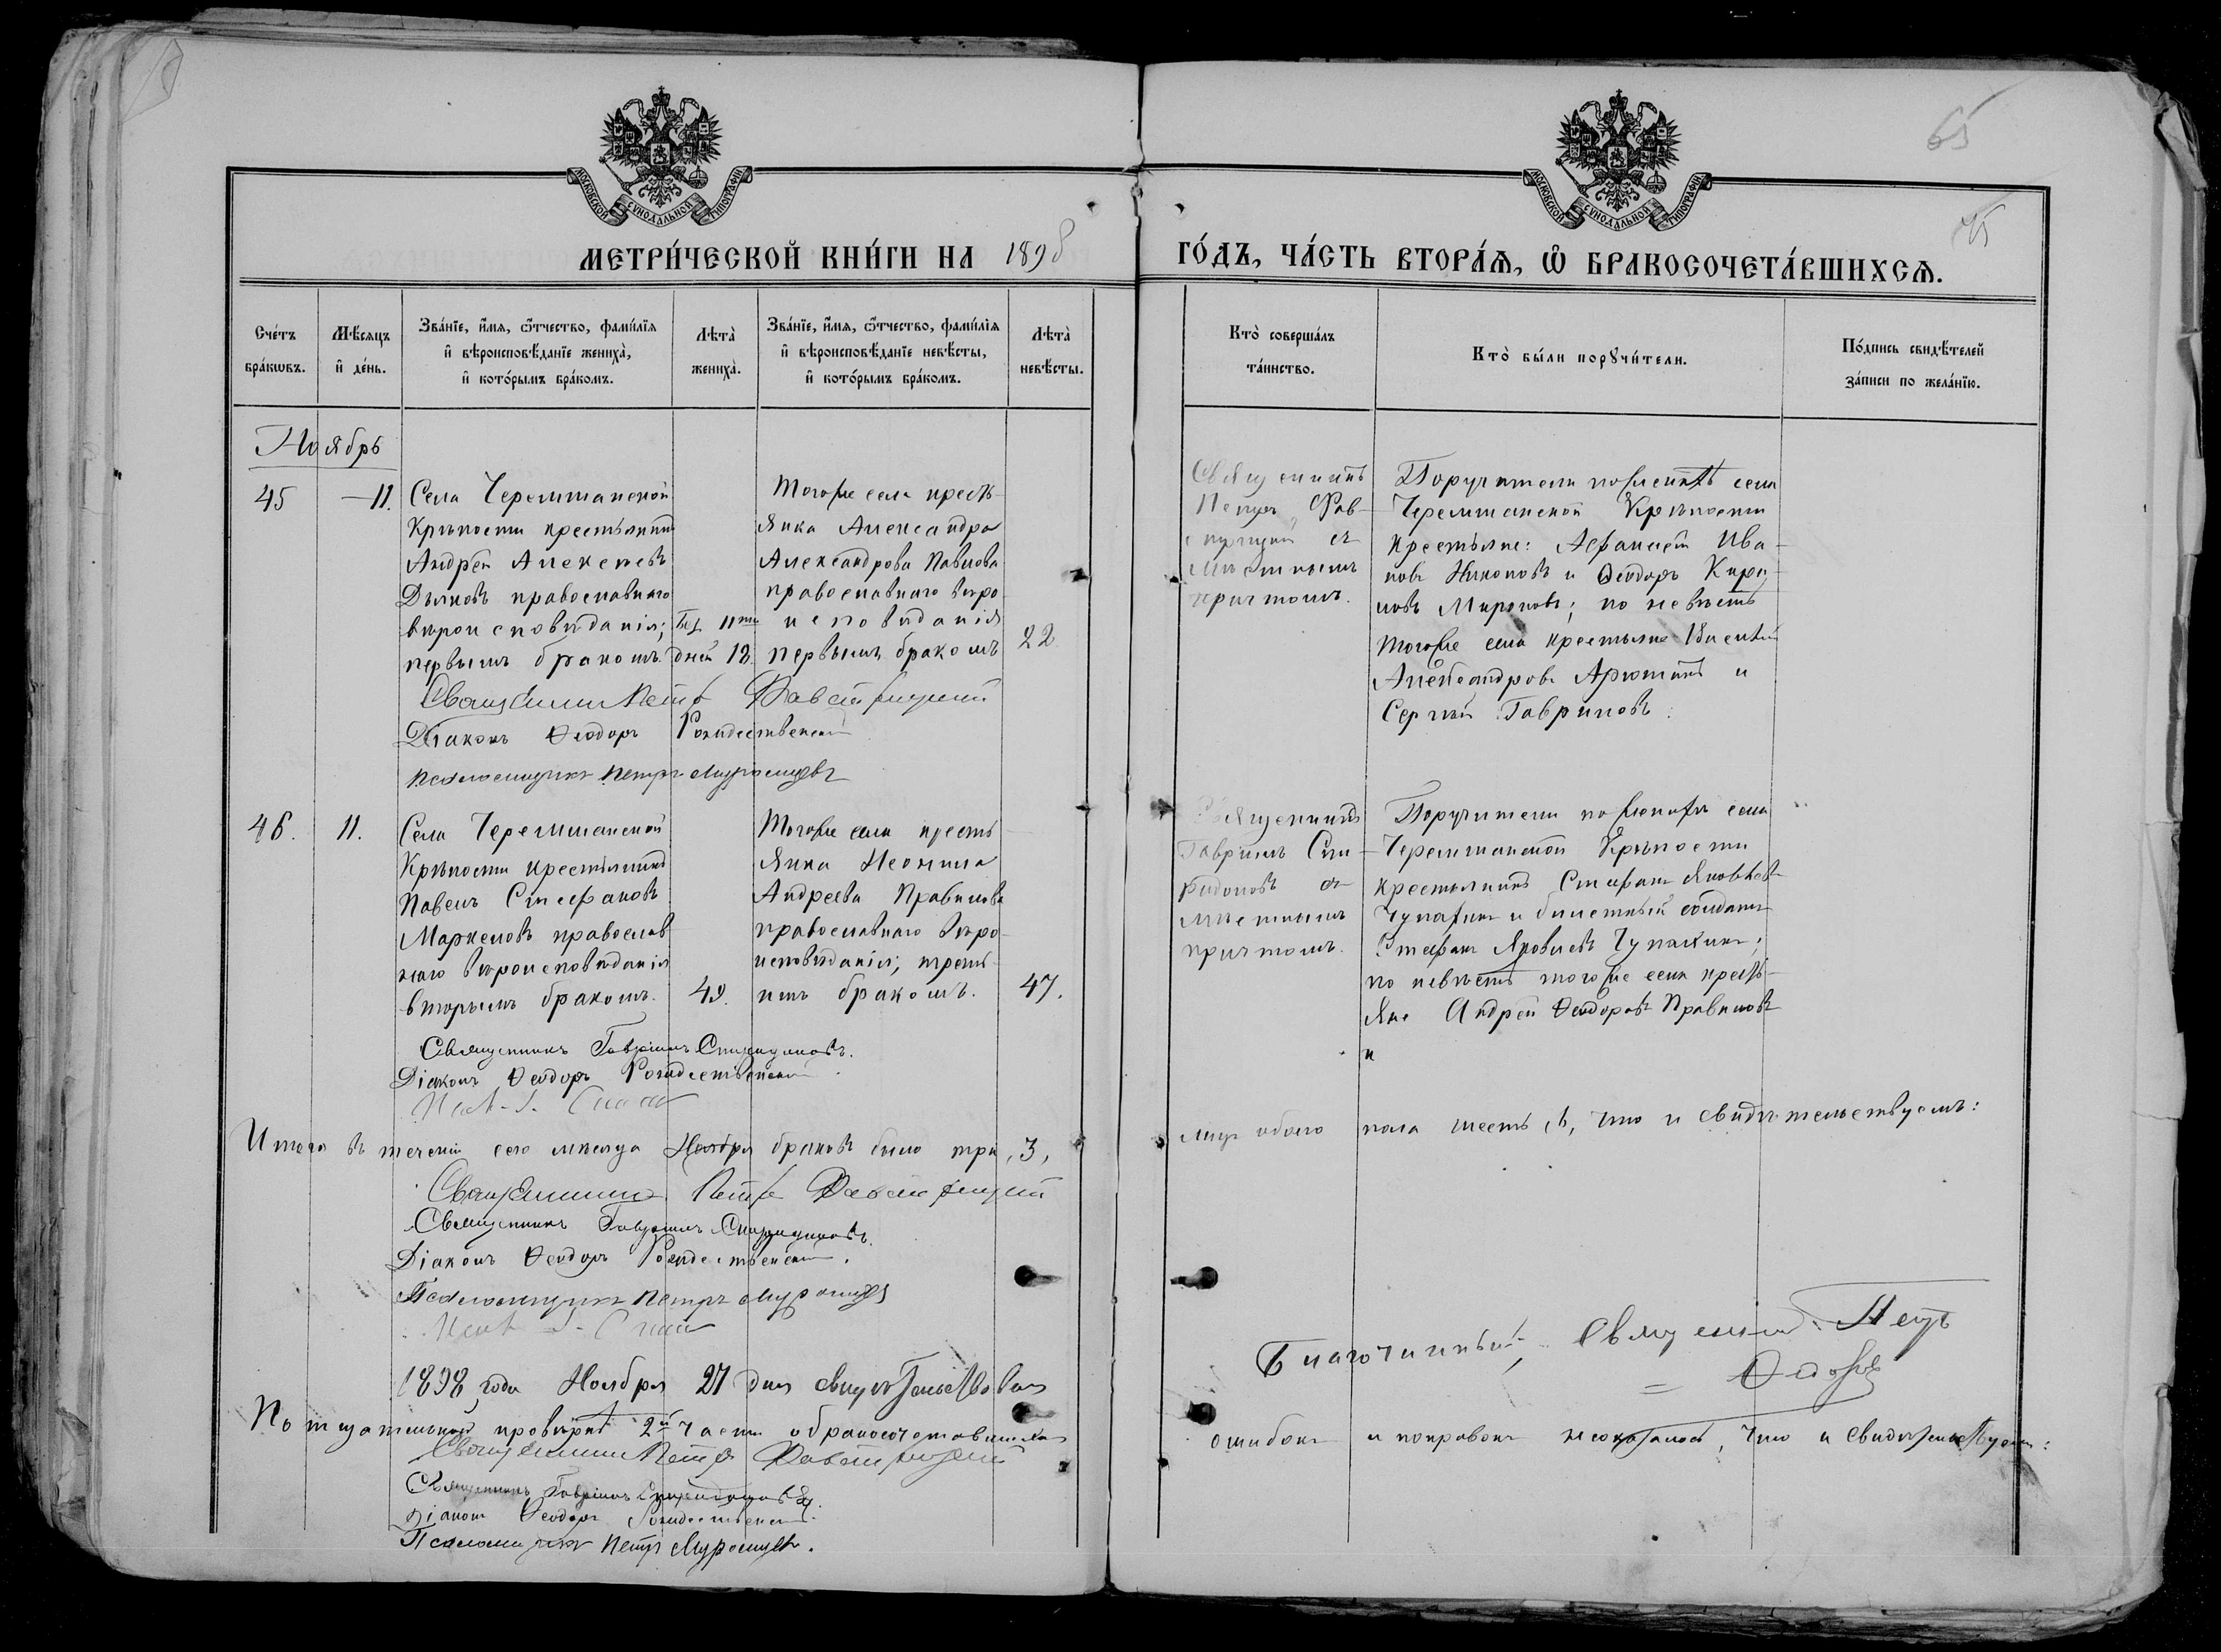 65
75
МОСКОВСКОЙ СѴНОДАЛЬНОЙ ТИПОГРАФІИ
МОСКОВСКОЙ СѴНОДАЛЬНОЙ ТИПОГРАФІИ
МЕТРИ́ЧЕСКОЙ КНИ́ГИ НА 1898
ГО́ДЪ, ЧА́СТЬ ВТОРА́Ѧ, Ѽ БРАКОСОЧЕТА́ВШИХСѦ.
Сче́тъ бра́кѡвъ.
Мѣ́сяцъ и҆ де́нь.
Зва́нїе, и҆́мѧ, ѻ҆́тчество, фами́лїѧ
и҆ вѣроисповѣ́данїе жениха̀,
и҆ кото́рымъ бра́комъ.
Лѣта̀ жениха̀.
Зва́нїе, и҆́мѧ, ѻ҆́тчество, фами́лїѧ
и҆ вѣроисповѣ́данїе невѣ́сты,
и҆ кото́рымъ бра́комъ.
Лѣта̀ невѣ́сты.
Кто̀ соверша́лъ та́инство.
Кто̀ бы́ли порꙋчи́тели.
По́дпись свидѣ́телей
за́писи по жела́нїю.
Ноябрь
45
11.
Села Черемшанской
Крѣпости крестьянинъ
Андрей Алексѣевъ
Дьяковъ православнаго
вѣроисповѣданія;
первымъ бракомъ.
дней 18.
Тогоже села кресть-
янка Александра
Александрова Павлова
православнаго вѣро-
исповѣданія
первымъ бракомъ
22
Священникъ
Петръ Фав-
стрицкій съ
мѣстнымъ
причтомъ.
Поручители по женихѣ села
Черемшанской Крѣпости
крестьяне: Афанасій Ива-
новъ Никоновъ и Ѳеодоръ Кирил-
ловъ Мироновъ; по невѣстѣ
тогоже села крестьяне Василій
Александровъ Арютинъ и
Сергѣй Гавриловъ.
Священникъ Петръ Фавстрицкій
Діаконъ Ѳеодоръ Рождественскій
Псаломщикъ Петръ Муромцевъ
46.
11.
Села Черемшанской
Крѣпости крестьянинъ
Павелъ Стефановъ
Маркеловъ православ-
наго вѣроисповѣданія
вторымъ бракомъ.
49.
Тогоже села кресть-
янка Неонила
Андреева Правилова
православнаго вѣро-
исповѣданія; треть-
имъ бракомъ.
47.
Священникъ
Гавріилъ Спи-
ридоновъ съ
мѣстнымъ
причтомъ.
Поручители по женихѣ села
Черемшанской Крѣпости
крестьянинъ Стефанъ Яковлевъ
Чупахинъ и билетный солдатъ
Стефанъ Яковлевъ Чупахинъ;
по невѣстѣ тогоже села кресть-
яне Андрей Ѳеодоровъ Правиловъ
и
Священникъ Гавріилъ Спиридоновъ.
Діаконъ Ѳеодоръ Рождественскій
Итого въ теченіи сего мѣсяца Ноября браковъ было три, 3,
лицъ обоего пола шесть, 6, что и свидѣтельствуемъ:
Священникъ Петръ Фавстрицкій
Священникъ Гавріилъ Спиридоновъ.
Діаконъ Ѳеодоръ Рождественскій.
Псаломщикъ Петръ Муромцевъ
1898 года Ноября 27 дня свидѣтельствовалъ
Благочинный, Священникъ Петръ
По тщательной провѣркѣ 2й части о бракосочетавшихся
ошибокъ и поправокъ неоказалось, что и свидѣтельствуемъ:
Священникъ Петръ Фавстрицкій
Священникъ Гавріилъ Спиридоновъ.
Діаконъ Ѳеодоръ Рождественскій.
Псаломщикъ Петръ Муромцевъ.